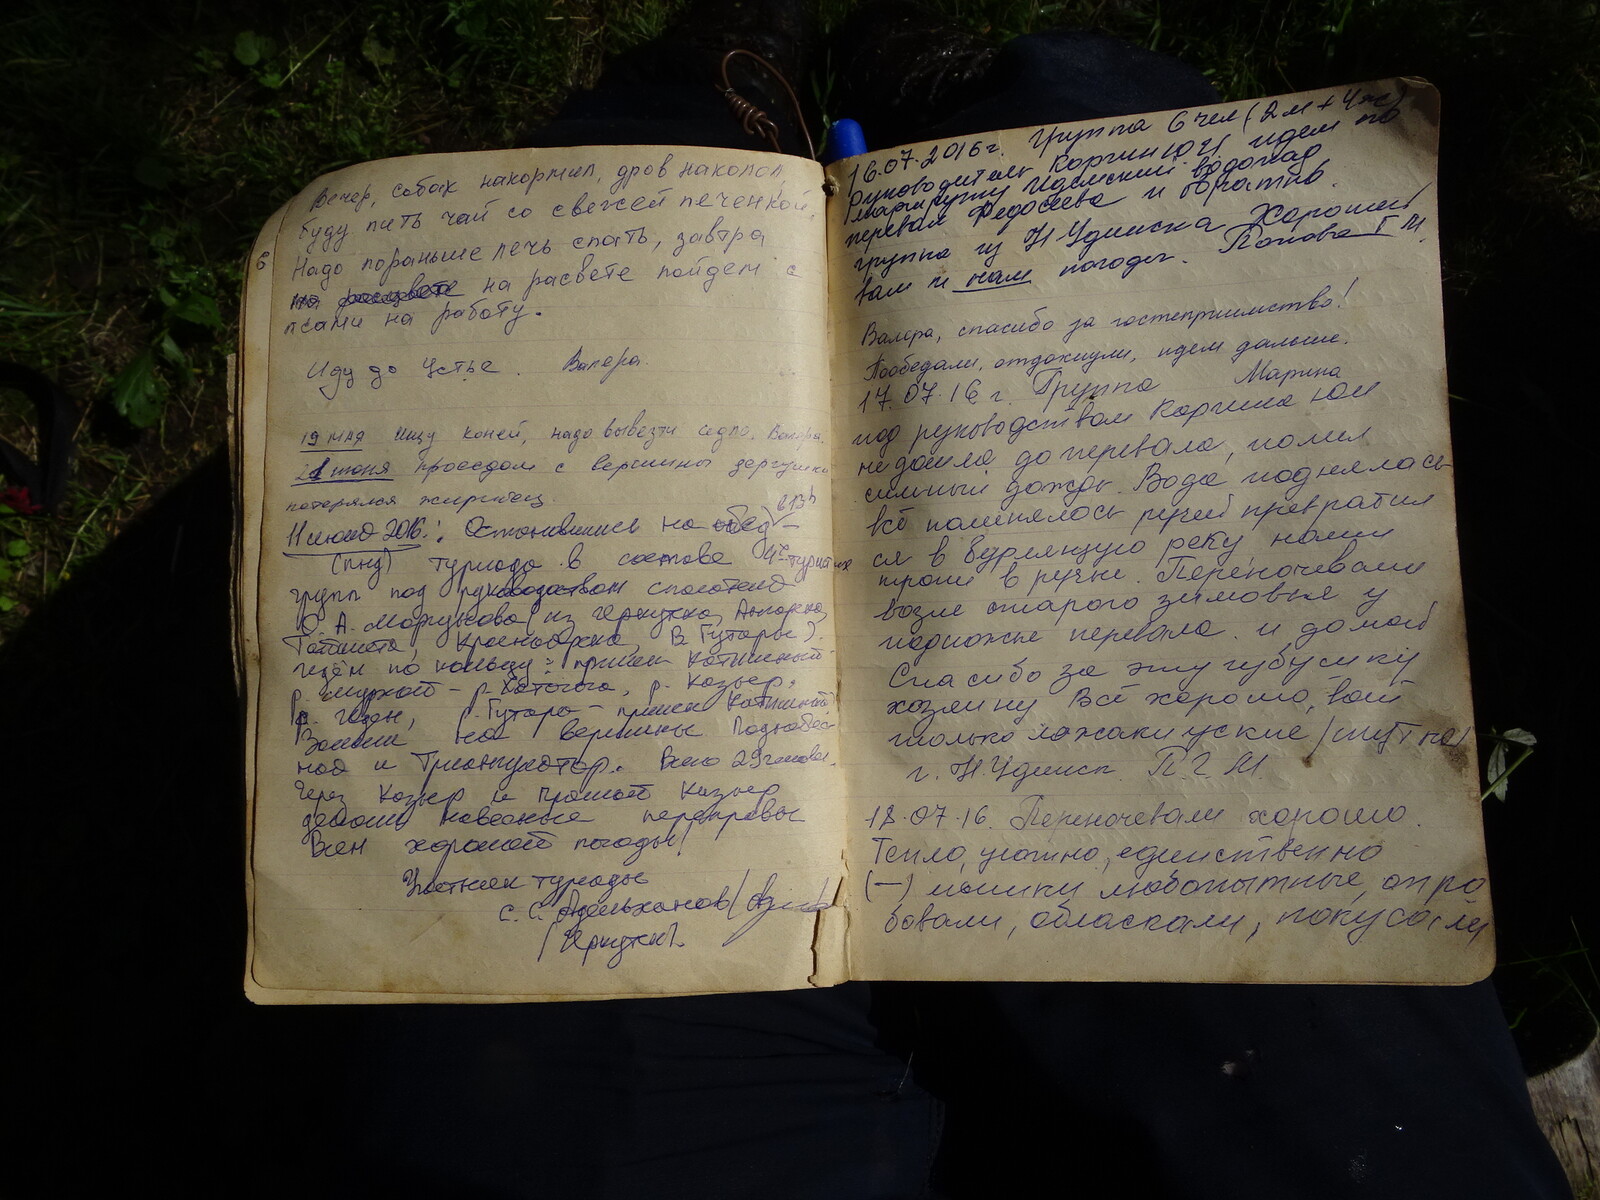 Вечер, собак накормил, дров наколол,
буду пить чай со свежей печенкой.
Надо пораньше лечь спать, завтра
на рассвете на расвете пойдем с
псами на работу.
Иду до Устье. Валера.
6
19 мая Ищу коней, надо вывезти седло. Валера.
21 июня проездом с вершины
потерялся жеребец.
11 июля 2016г.: Остановились на обед в 13ч
(пнд) туриада в составе 4х турист
групп под руководством спасателя
С. А. (из Иркутска, Ангарска,
Тайшета, Красноярска, В. Гутары).
идём по кольцу: прииск Катышный
р. р. Хатага, р. Казыр,
р. Иден, р. Гутара – прииск Катышный
на вершины Поднебес
ная и Триангулятор. Всего 29 человек.
Через Казыр и Прямой Казыр
делали навесные переправы
Всем хорошей погоды!
Участник туриады
С. С. Адельханов
Иркутск
16.07.2016г. Группа 6 чел (2м + 4ж)
руководитель Каргин Ю И идем по
маршруту водопад
перевал Федосеева и обратно.
группа из Н Удинска Хорошей
вам и нам погоды. Попова Г М.
Валера, спасибо за гостеприимство!
Пообедали, отдохнули, идем дальше.
Марина
17.07.16 г. Группа
под руководством Каргина ЮИ
не дошла до перевала, полил
сильный дождь. Вода поднялась
всё поменялось ручей превратил
ся в бурлящую реку, наши
тропи в ручье. Переночевали
возле старого зимовья у
подножье перевала. и домой
Спасибо за эту избушку
хозяину Всё хорошо,
только
г. Н.Удинск П. Г. М.
18.07.16. Переночевали хорошо.
Тепло, уютно, единственно
(–) мышки любопытные, опро
бовали, обласкали, покусали